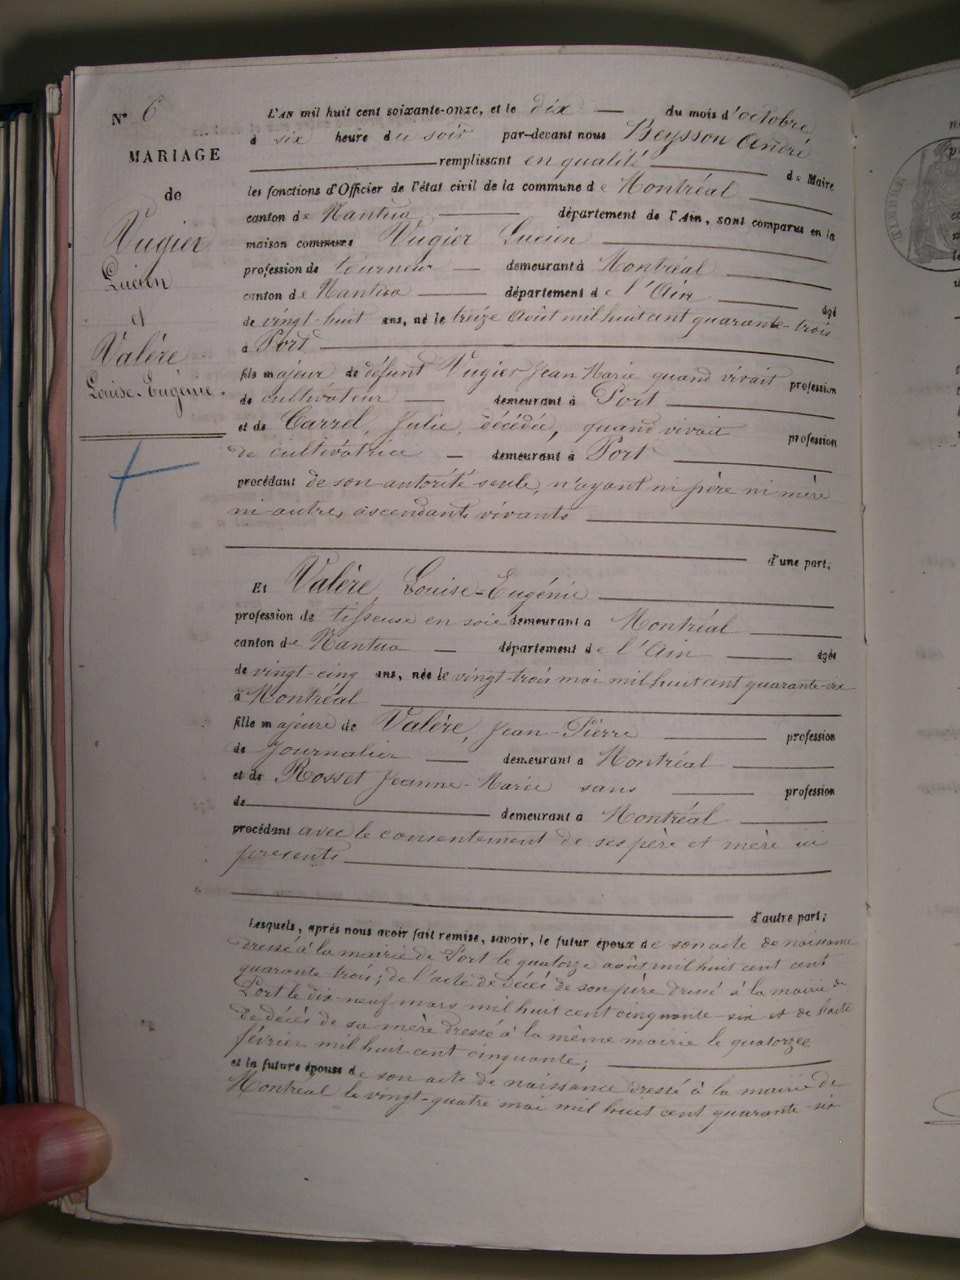 N° 6
MARIAGE
de
Vugier
Lucien
et
Valère
Louise-Eugénie.
L'AN mil huit cent soixante-onze, et le dix du mois d'octobre
à six heure du soir par-devant nous Beysson André
remplissant en qualité de Maire
les fonctions d'Officier de l'état civil de la commune de Montréal
canton de Nantua département de l'Ain, sont comparus en la
maison commune Vugier Lucien
profession de tourneur demeurant à Montréal
canton de Nantua département de l'Ain âgé
de vingt-huit ans, né le treize Août mil huit cent quarante-trois
à Port
fils majeur de défunt Vugier Jean Marie quand vivait profession
de cultivateur demeurant à Port
et de Carrel, Julie, décédée, quand vivait profession
de cultivatrice demeurant à Port
procédant de son autorité seule, n'ayant ni père ni mère
ni autres ascendants vivants
d'une part;
Et Valère, Louise-Eugénie
profession de tisseuse en soie demeurant à Montréal
canton de Nantua département de l'Ain âgée
de vingt-cinq ans, née le vingt-trois mai mil huit cent quarante-six
à Montréal
fille majeure de Valère, Jean-Pierre profession
de journalier demeurant à Montréal
et de Rosset Jeanne-Marie sans profession
de demeurant à Montréal
procédant avec le consentement de ses père et mère ici
présents
d'autre part;
Lesquels, après nous avoir fait remise, savoir, le futur époux de son acte de naissance
dressé à la mairie de Port le quatorze août mil huit cent cent
quarante-trois; de l'acte de décès de son père dressé à la mairie de
Port le dix-neuf mars mil huit cent cinquante-six et de l'acte
de décès de sa mère dressé à la même mairie le quatorze
février mil huit cent cinquante;
et la future épouse de son acte de naissance dressé à la mairie de
Montréal le vingt-quatre mai mil huit cent quarante-six